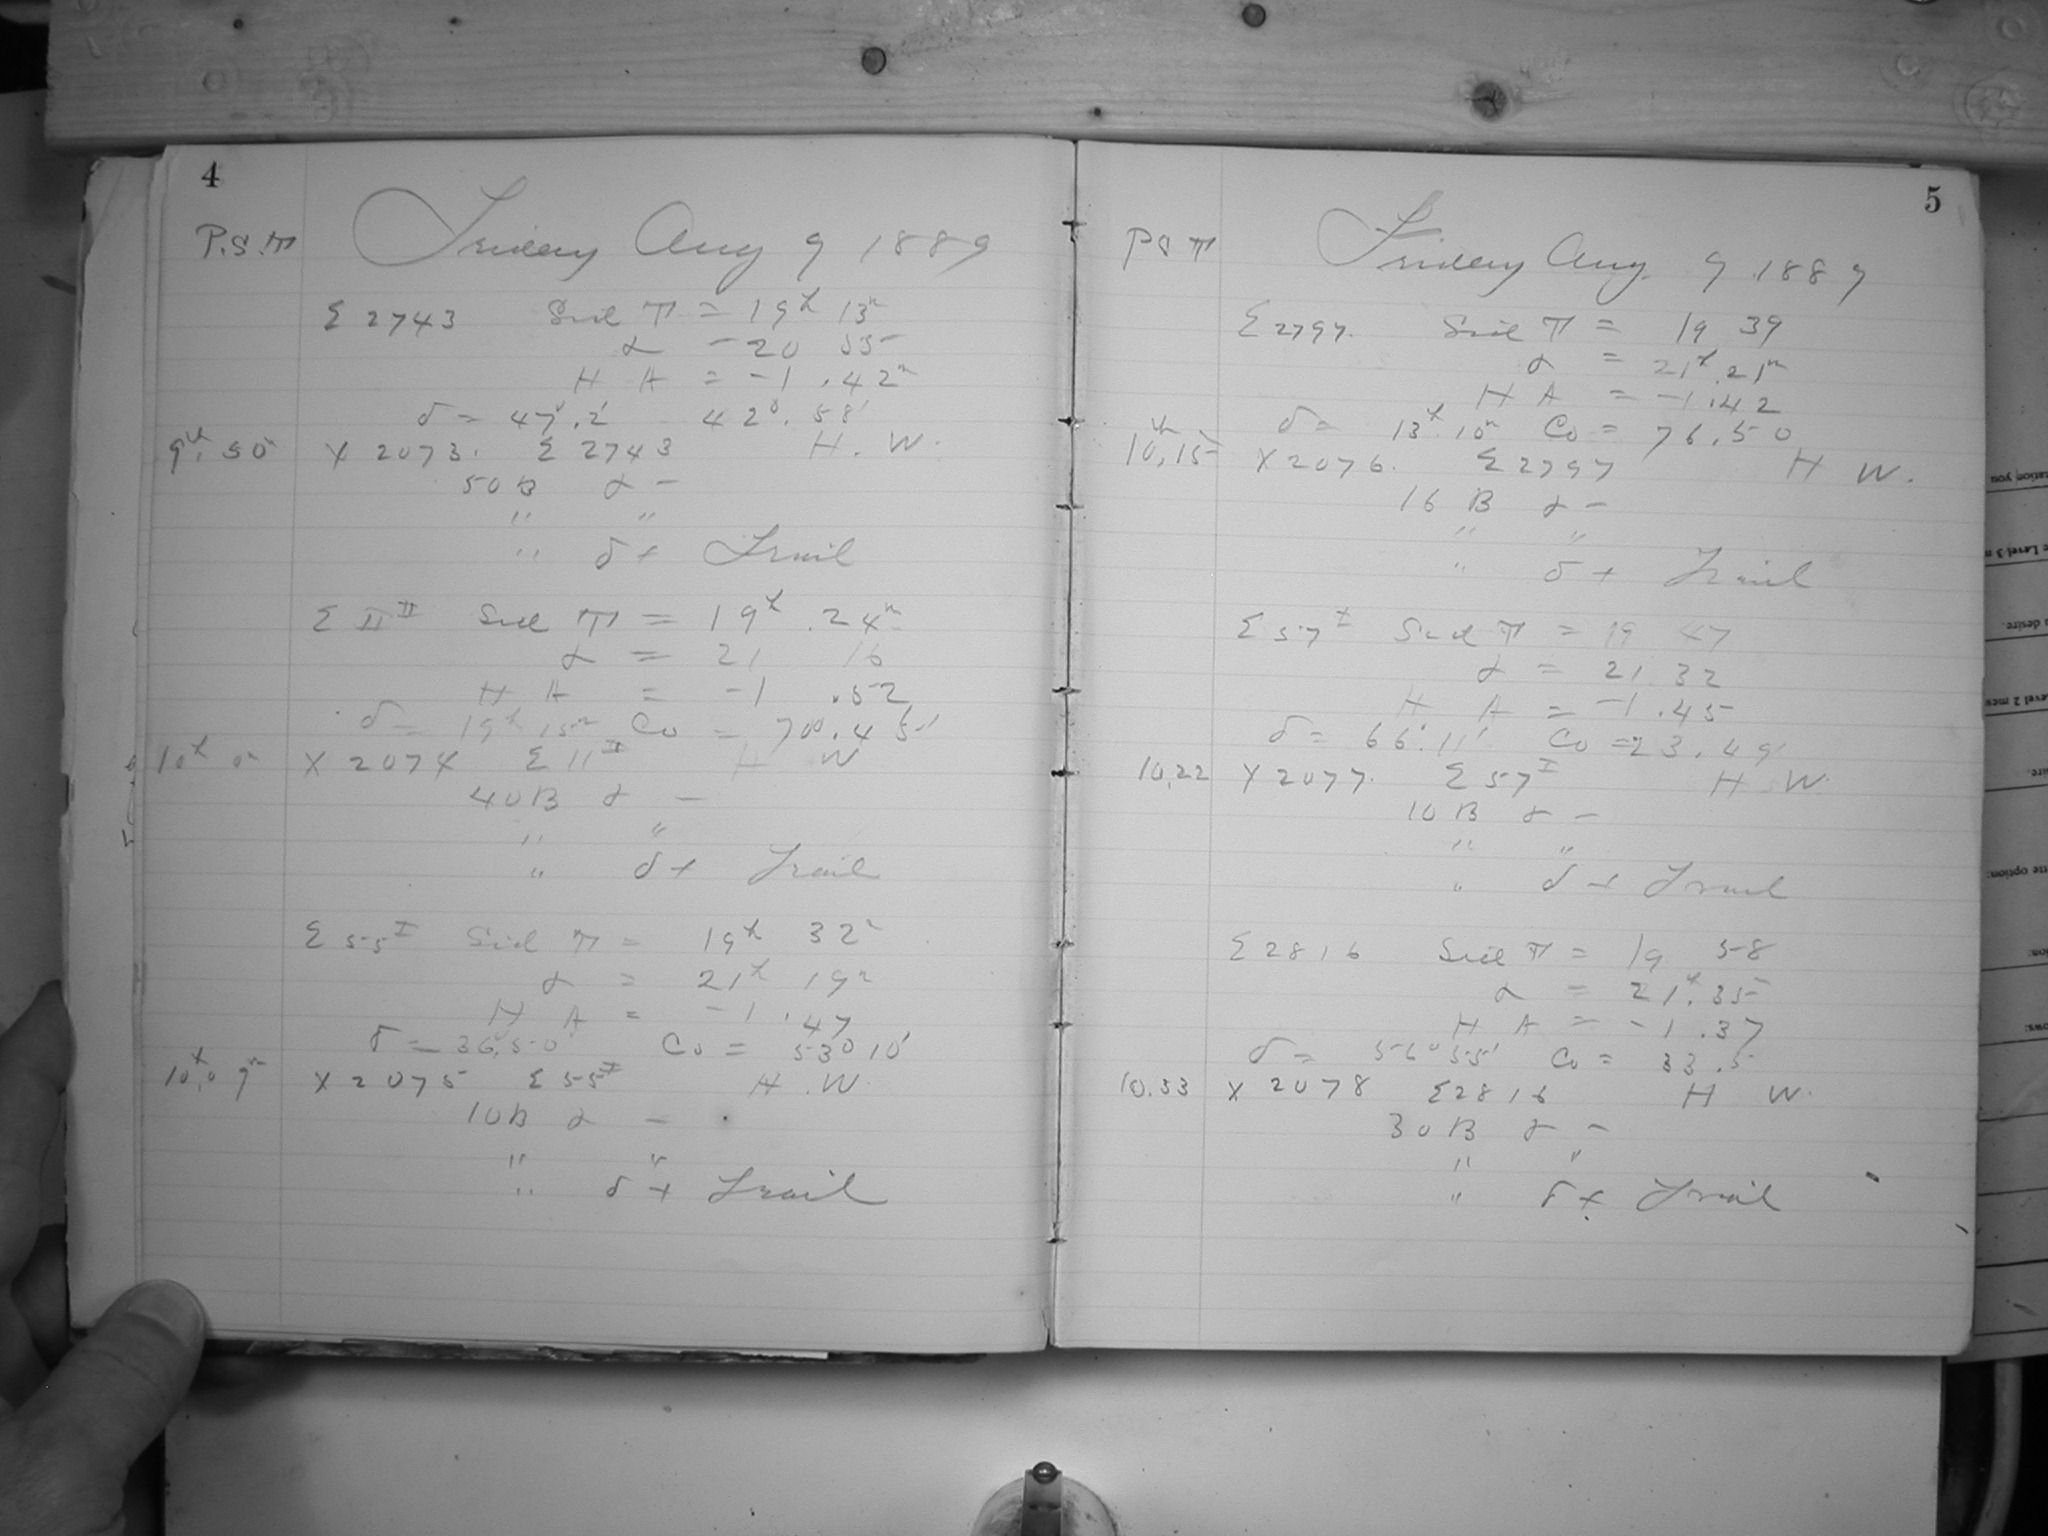 4
P.S.T Friday Aug 9 1889
Σ 2743 Sid T = 19h 13m
α - 20 55
H A = -1 .42m
δ = 47°.2' 42°.58'
9h.50 X 2073. Σ 2743 H. W.
50 B α -
" "
" δ + Trail
Σ II II Sid T = 19h .24m
α = 21 16
H A = -1 .52
δ = 19h 15m Co = 70°.45'
10h 0m X 2074 Σ II I H W
40 B α -
" "
" δ + Trail
Σ 55 I Sid T = 19h 32m
α = 21h 19m
H A = -1 .47
δ = 36°.50' Co = 53° 10'
10h.09m X 2075 Σ 55 I H. W.
10 B α -
" "
" δ + Trail
5
P S T Friday Aug. 9 1889
Σ 2797. Sid T = 19 39
α = 21h.21m
H A = -1.42
δ = 13h.10m Co = 76.50
10h,15 X 2076. Σ 2797 H W.
16 B α -
" "
" δ + Trail
Σ 57 I Sid T = 19 47
α = 21 32
H A = -1.45
δ = 66°.11' Co = 23.49'
10,22 X 2077. Σ 57 I H W.
10 B α -
" "
" δ + Trail
Σ 2816 Sid T = 19 58
α = 21h.35
H A = -1.37
δ = 56° 55' Co = 33.5
10.33 X 2078 Σ 2816 H W.
30 B α -
" "
" δ + Trail